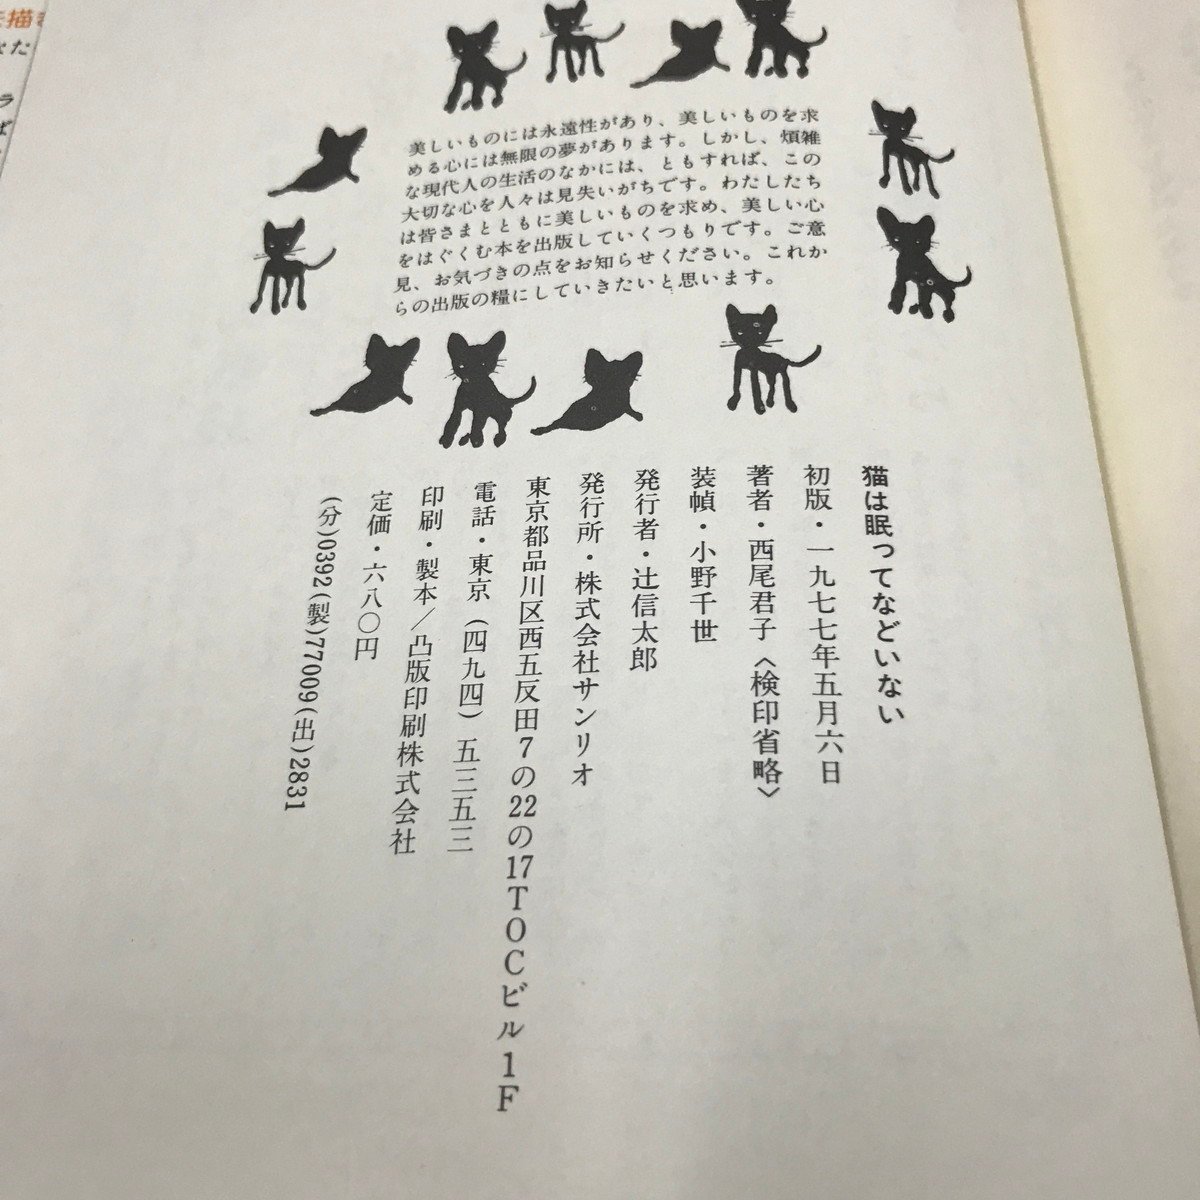 美しいものには永遠性があり、美しいものを求
める心には無限の夢があります。しかし、煩雑
な現代人の生活のなかには、ともすれば、この
大切な心を人々は見失いがちです。わたしたち
は皆さまとともに美しいものを求め、美しい心
をはぐくむ本を出版していくつもりです。ご意
見、お気づきの点をお知らせください。これか
らの出版の糧にしていきたいと思います。
猫は眠ってなどいない
初版・一九七七年五月六日
著者・西尾君子〈検印省略〉
装幀・小野千世
発行者・辻信太郎
発行所・株式会社サンリオ
東京都品川区西五反田7の22の17TOCビル1F
電話・東京（四九四）五三五三
印刷・製本／凸版印刷株式会社
定価・六八〇円
(分)0392(製)77009(出)2831